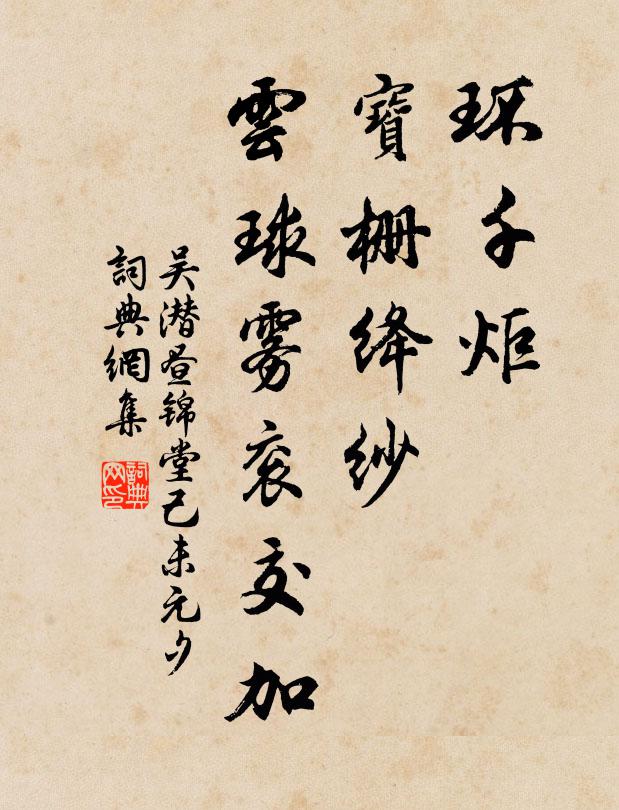 环千炬
寶栅绛纱
雲球雾衮交加
吴潜昼锦堂己未元夕
詞典網集
詞典网印